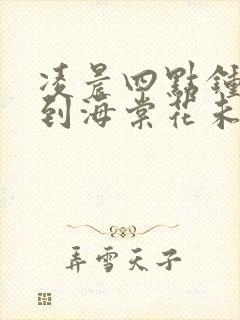 凌晨四點鍾
到海棠花未
弄雪天子